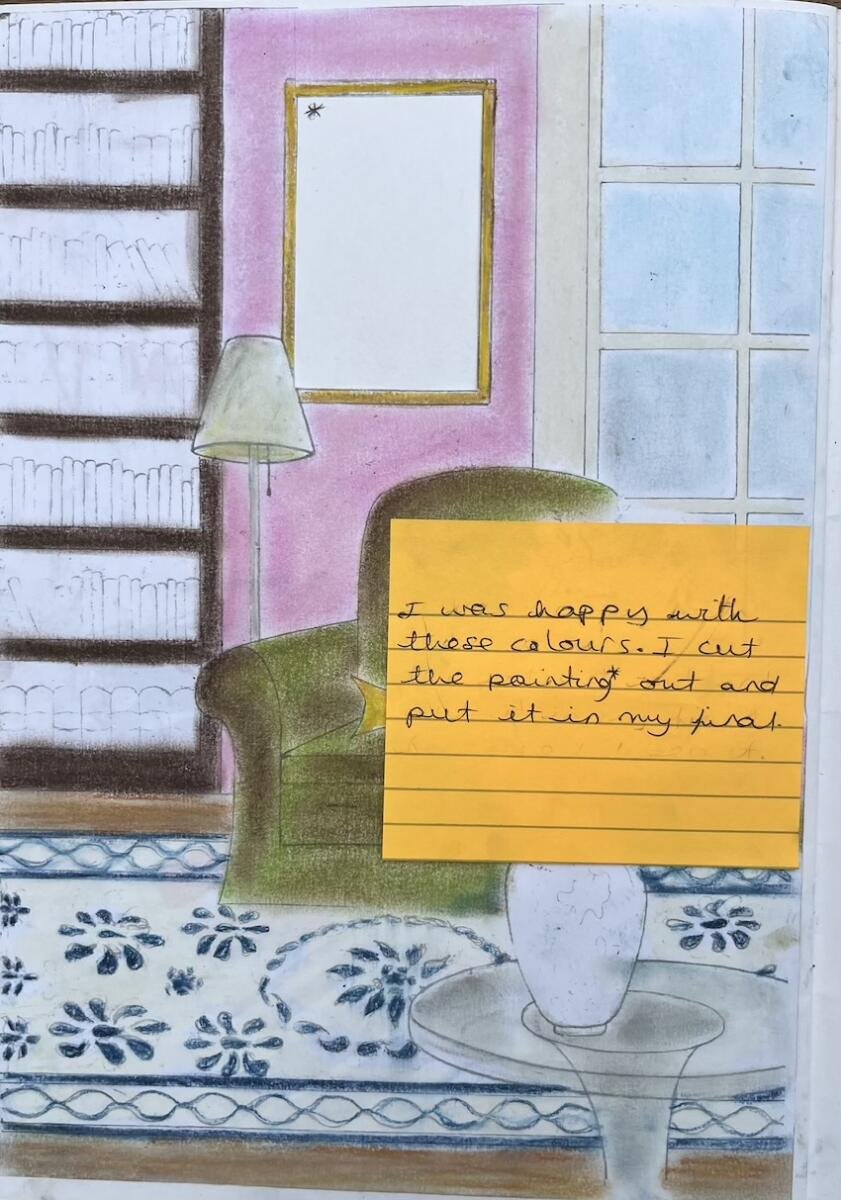 *
I was happy with
these colours. I cut
the painting* out and
put it in my final.